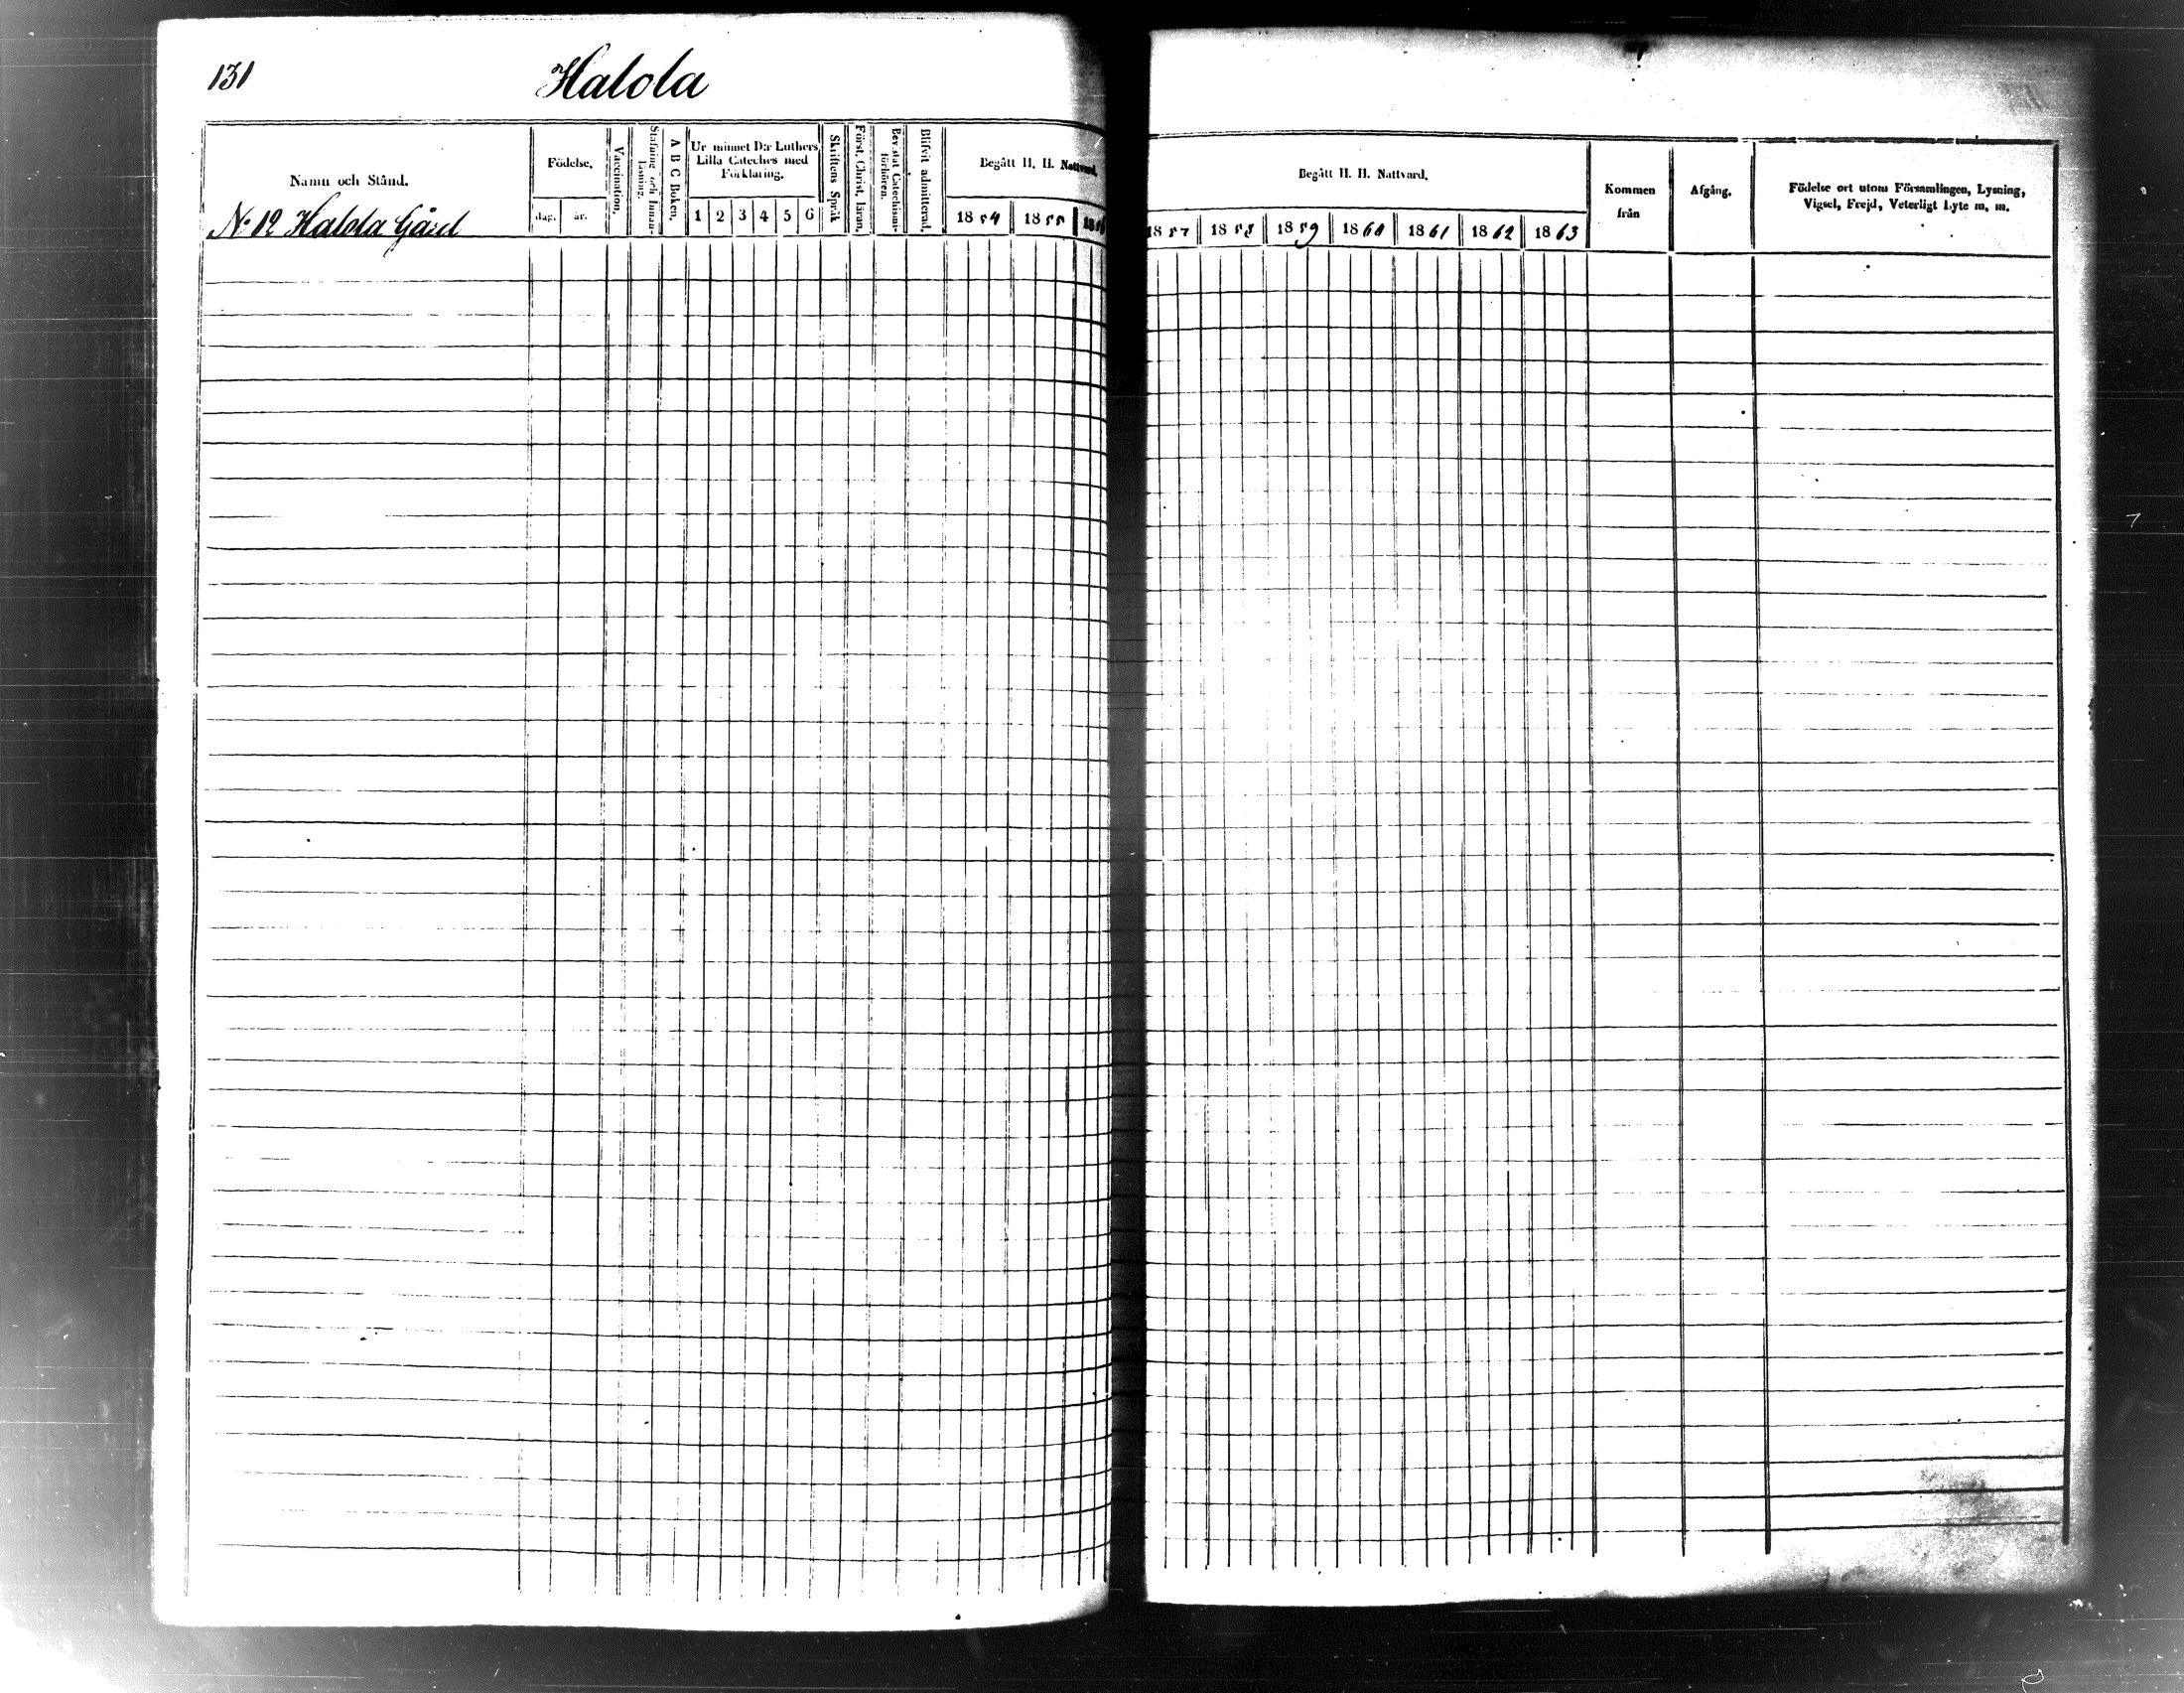 131
Halola
Namn och Stånd.
Födelse.
dag.
år.
Vaccination.
Stafning och Innan-
läsning.
A B C Boken.
Ur minnet D:r Luthers
Lilla Cateches med
Förklaring.
1 2 3 4 5 6
Skriftens Språk
Först. Christ. läran.
Bevistat Catechismi-
förhören.
Blifvit admitterad.
Begått H. H. Nattvard.
1854 1855 1856
N:o 12 Halola Gård
Begått H. H. Nattvard.
1857 1858 1859 1860 1861 1862 1863
Kommen
från
Afgång.
Födelse ort utom Församlingen, Lysning,
Vigsel, Frejd, Veterligt Lyte m. m.